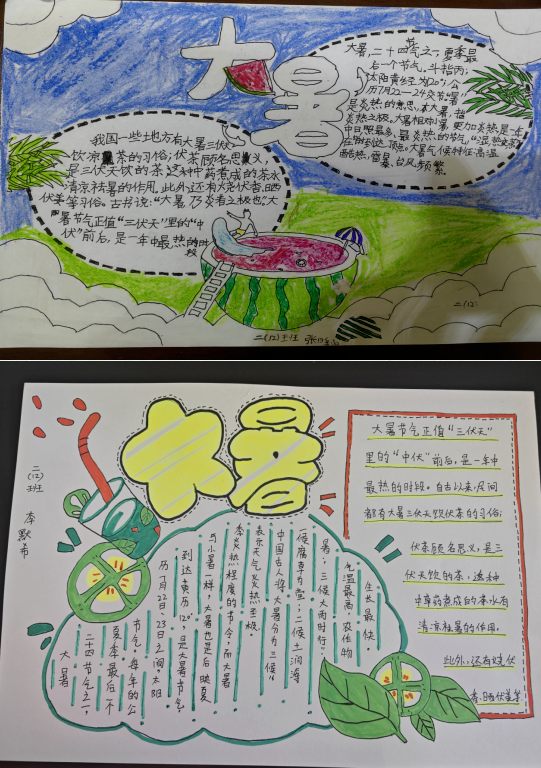 大暑
大暑，二十四节气之一，夏季最
后一个节气。斗指丙；
太阳黄经为120°；公
历7月22—24交节。"暑"
是炎热的意思，大暑，指
炎热之极。大暑相对小暑，更加炎热，是一年
中日照最多、最炎热的节气，"湿热交蒸"
在此到达顶点。大暑气候特征：高温
酷热，雷暴、台风频繁
我国一些地方有大暑三伏天
饮凉茶的习俗，伏茶顾名思义，
是三伏天饮的茶，这种中药煮成的茶水
清凉祛暑的作用。此外还有烧伏香，晒
伏姜等习俗。古书说："大暑乃炎者之极也。"大
暑节气正值"三伏天"里的"中
伏"前后，是一年中最热的时
段
二(12)
二(12)班
大暑
二(12)班
李默希
大暑节气正值"三伏天"
里的"中伏"前后，是一年中
最热的时段。自古以来，民间
都有大暑三伏天饮伏茶的习俗，
伏茶顾名思义，是三
伏天饮的茶，这种
中草药煮成的茶水有
清凉祛暑的作用。
此外，还有烧伏
香，晒伏姜等
大暑
二十四节气之一，
夏季最后一个
节气。每年的公
历7月22日、23日之间，太阳
到达黄历120°，是大暑节气。
与小暑一样，大暑也是后映夏
季炎热程度的节令，而大暑
表示天气炎热至极。
中国古人将大暑分为三候："一
候腐草为萤；二候土润溽
暑；三候大雨时行。"
气温最高，农作物
生长最快。